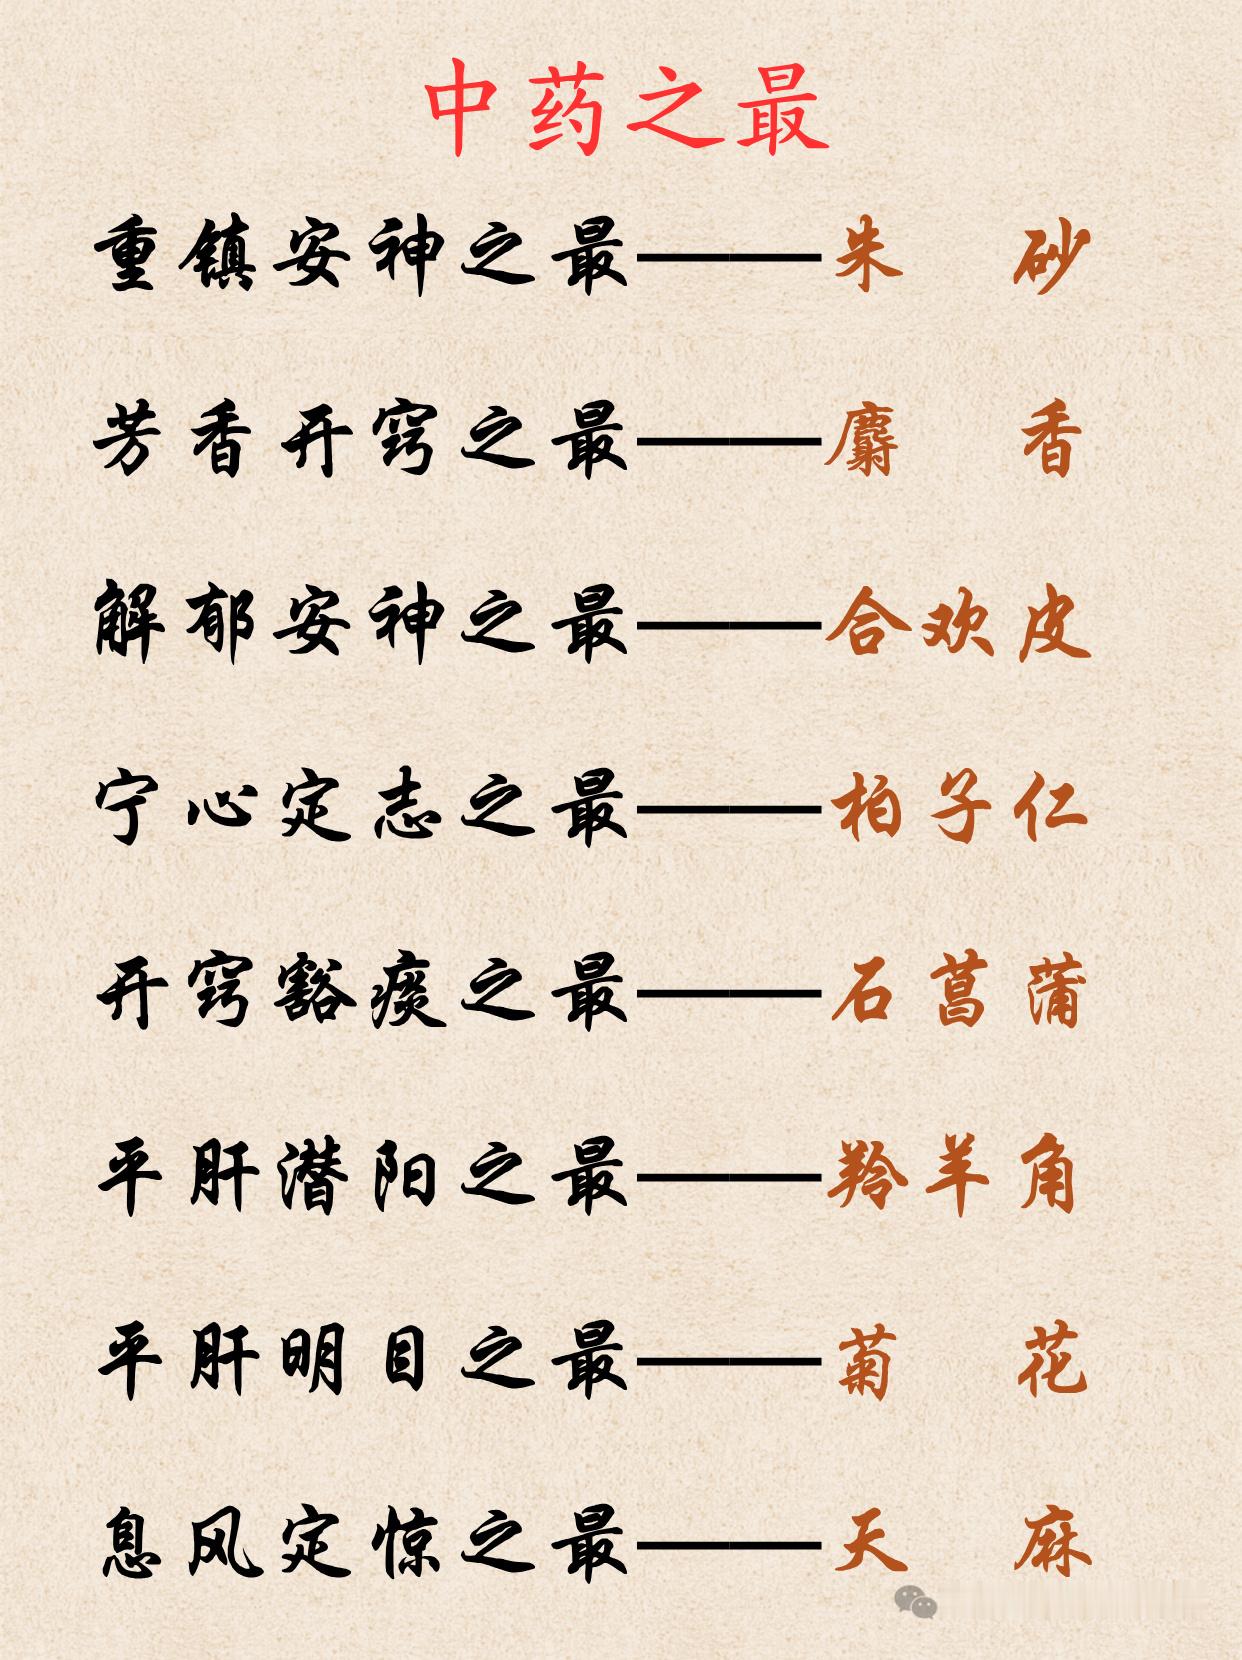 中药之最
重镇安神之最——朱 砂
芳香开窍之最——麝 香
解郁安神之最——合欢皮
宁心定志之最——柏子仁
开窍豁痰之最——石菖蒲
平肝潜阳之最——羚羊角
平肝明目之最——菊 花
息风定惊之最——天 麻